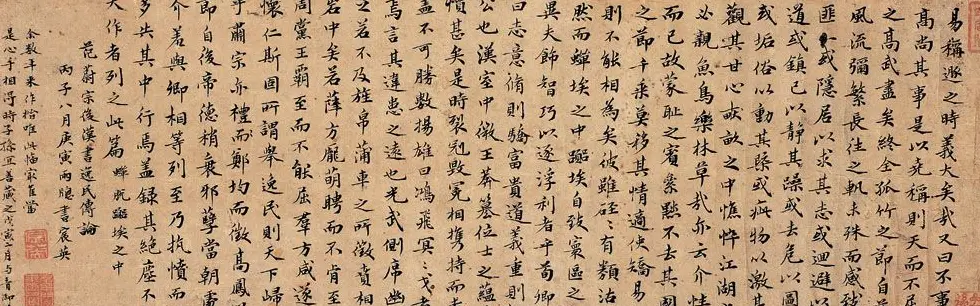 易稱遯之時義大矣哉又曰不事
高尚其事是以堯稱則天而不
之高武盡矣終全孤竹之節
風流彌繁長往之軌未殊而感致
匪一或隱居以求其志或迴避以
道或鎮已以靜其躁或去危以圖
或垢俗以動其槩或疵物以激其
觀其甘心畎畝之中憔悴江湖
必親魚鳥樂林草哉亦云介情
而已故蒙恥之賓屢黜不去其國
之節千乘莫移其情適使矯易
則不能相為矣彼雖硜〻有類沽
然而蟬埃之中蹈埃自致寰區之
異夫飾智巧以逐浮利者乎荀卿
曰志意脩則驕富貴道義重則
公也漢室中微王莽篡位士之蘊
憤甚矣是時裂冠毀冕相攜持而
蓋不可勝數揚雄曰鴻飛冥〻弋者
焉言其違患之遠也光武側席幽
之若不及旌帛蒲車之所徵賁相
岩中矣若薛方龐萌聘而不肯至
周黨王霸至而不能屈群方咸遂
懷仁斯固所謂舉逸民則天下歸
乎肅宗亦禮而鄭均而徵高鳳
節自後帝德稍衰邪孽當朝處
介羞與卿相等列至乃執憤而
多失其中行焉蓋錄其絕塵不
夫作者列之此篇
蟬蛻蹈埃之中
范蔚宗後漢書逸民傳論
丙子八月庚寅雨牕書宸英
余數年來作楷唯此臨家直當
是心手相得時子孫宜善藏之戊寅二月与青御